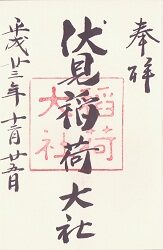 奉拝
伏見稲荷大社
稲荷
大社
平成廿三年十二月廿五日